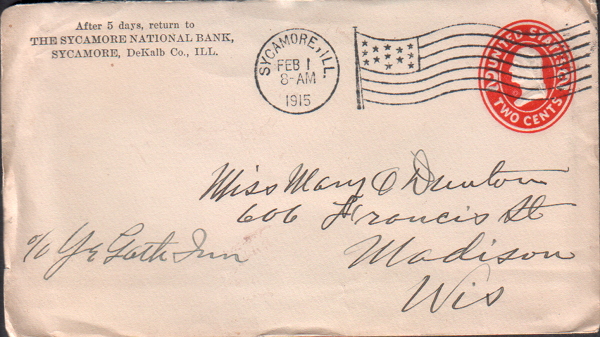 After 5 days, return to
THE SYCAMORE NATIONAL BANK,
SYCAMORE, DeKalb Co., ILL.
SYCAMORE, ILL.
FEB 1
8-AM
1915
UNITED STATES
TWO CENTS
Miss Mary O Dunton
606 Francis St
Madison
Wis
c/o Ye Gath Inn